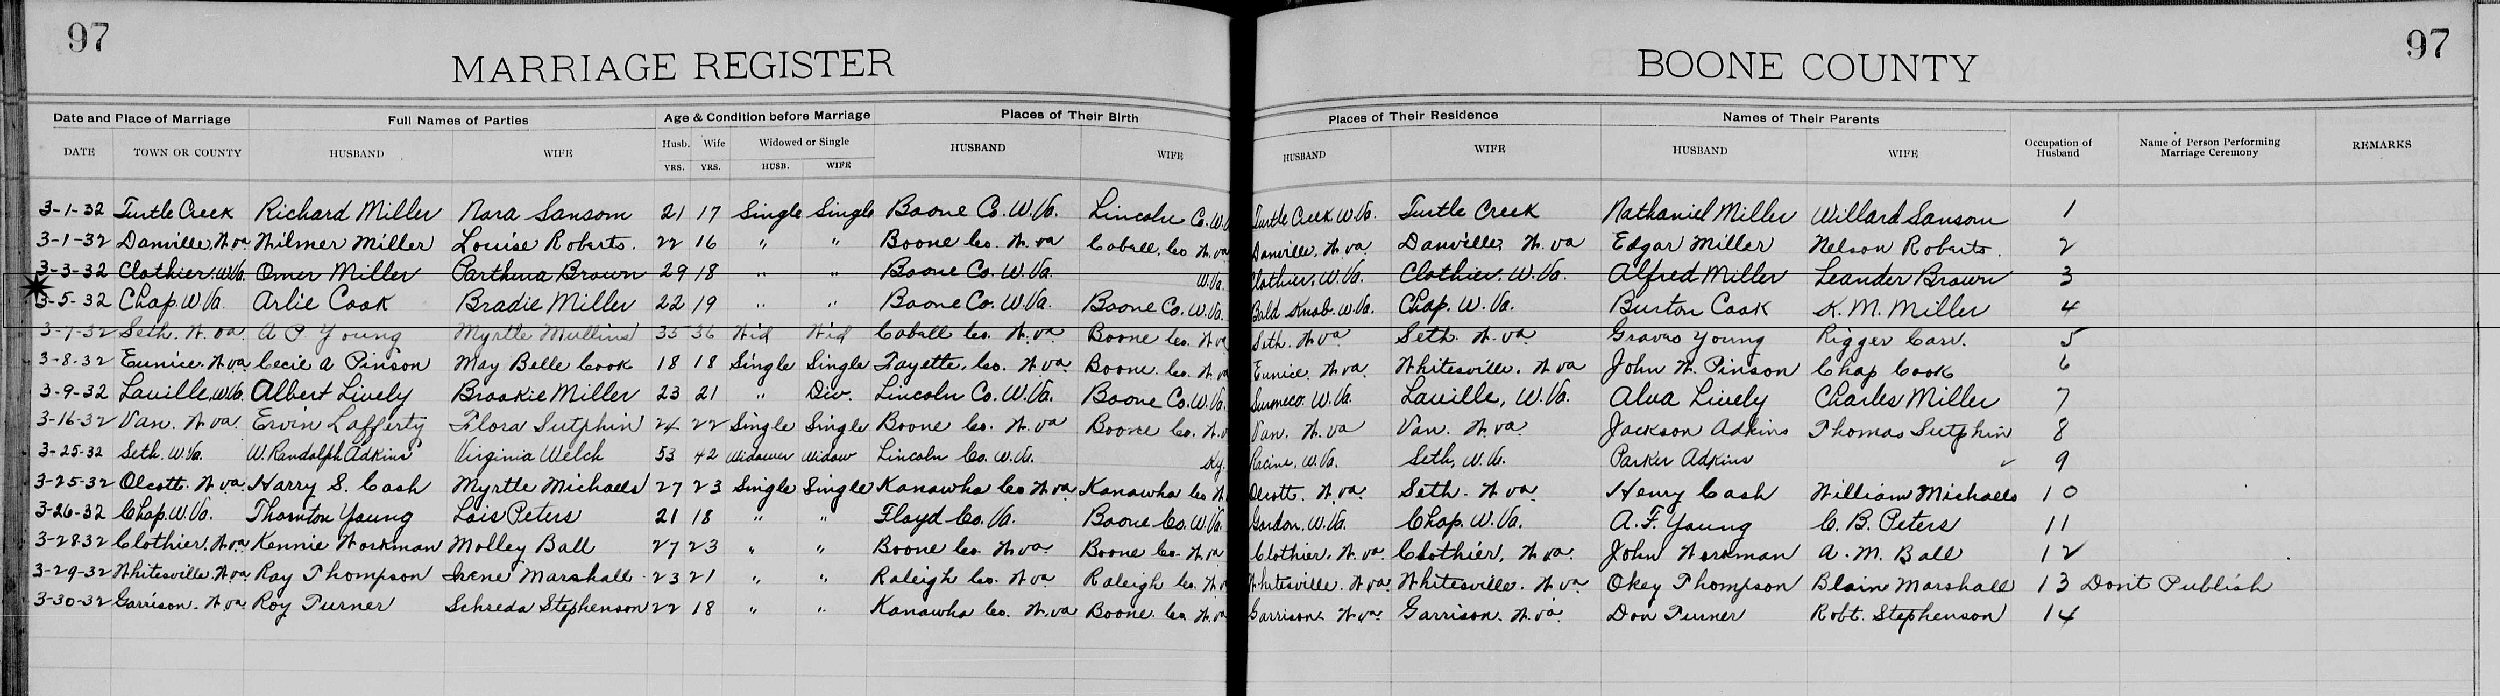 97 97
MARRIAGE REGISTER BOONE COUNTY
Date and Place of Marriage Full Names of Parties Age & Condition before Marriage Places of Their Birth Places of Their Residence Names of Their Parents Occupation of Husband Name of Person Performing Marriage Ceremony REMARKS
DATE TOWN OR COUNTY HUSBAND WIFE Husb. Wife Widowed or Single HUSBAND WIFE HUSBAND WIFE HUSBAND WIFE
YRS. YRS. HUSB. WIFE
3-1-32 Turtle Creek Richard Miller Nara Sansom 21 17 Single Single Boone Co. W. Va. Lincoln Co. W. Turtle Creek W. Va. Turtle Creek Nathaniel Miller Willard Sansom 1
3-1-32 Danville, W. Va Wilmer Miller Louise Roberts. 22 16 " " Boone Co. W. Va Cabell, Co W. Va Danville, W. Va Danville, W. Va Edgar Miller Nelson Roberts. 2
3-3-32 Clothier, W. Va. Omer Miller Parthena Brown 29 18 " " Boone Co. W. Va. W. Va. Clothier, W. Va. Clothier, W. Va. Alfred Miller Leander Brown 3
3-5-32 Chap. W. Va. Arlie Cook Bradie Miller 22 19 " " Boone Co. W. Va. Boone Co. W. Va. Bald Knob W. Va. Chap. W. Va. Burton Cook K. M. Miller 4
3-7-32 Seth. W. Va. A P. Young Myrtle Mullins 35 36 Wid Wid Cabell Co. W. Va Boone Co. W. Va Seth. W. Va Seth. W. Va Graves Young Rigger Carr. 5
3-8-32 Eunice. W. Va Cecil A Pinson May Belle Cook 18 18 Single Single Fayette, Co. W. Va Boone. Co. W. Va Eunice. W. Va. Whitesville. W. Va John W. Pinson Chap Cook 6
3-9-32 Laville, W. Va. Albert Lively Brookie Miller 23 21 " Div. Lincoln Co. W. Va. Boone Co. W. Va. W. Va. Laville, W. Va. Alva Lively Charles Miller 7
3-16-32 Van. W. Va. Ervin Lafferty Flora Sutphin 24 22 Single Single Boone Co. W. Va Boone Co. W. V Van. W. Va Van. W. Va. Jackson Adkins Thomas Sutphin 8
3-25-32 Seth. W. Va. W. Randolph Adkins Virginia Welch 53 42 Widower Widow Lincoln Co. W. Va. Ky. Racine, W. Va. Seth, W. Va. Parker Adkins 9
3-25-32 Olcott. W. Va. Harry S. Cash Myrtle Michaels 27 23 Single Single Kanawha Co W. Va Kanawha Co W. Olcott. W. Va Seth. W. Va Henry Cash William Michaels 10
3-26-32 Chap. W. Va. Thornton Young Lois Peters 21 18 " " Floyd Co. Va. Boone Co. W. Va. Gordon. W. Va. Chap. W. Va. A. F. Young C. B. Peters 11
3-28-32 Clothier. W. Va. Kennie Workman Molley Ball 27 23 " " Boone Co. W. Va Boone Co. W. Va Clothier, W. Va Clothier, W. Va. John Workman A. M. Ball 12
3-29-32 Whitesville. W. Va. Ray Thompson Irene Marshall 23 21 " " Raleigh Co. W. Va Raleigh Co. W. Va Whitesville. W. Va. Whitesville. W. Va Okey Thompson Blain Marshall 13 Don't Publish
3-30-32 Garrison. W. Va Roy Turner Schreda Stephenson 22 18 " " Kanawha Co. W. Va Boone. Co. W. Va Garrison. W. Va. Garrison. W. Va. Don Turner Robt. Stephenson 14